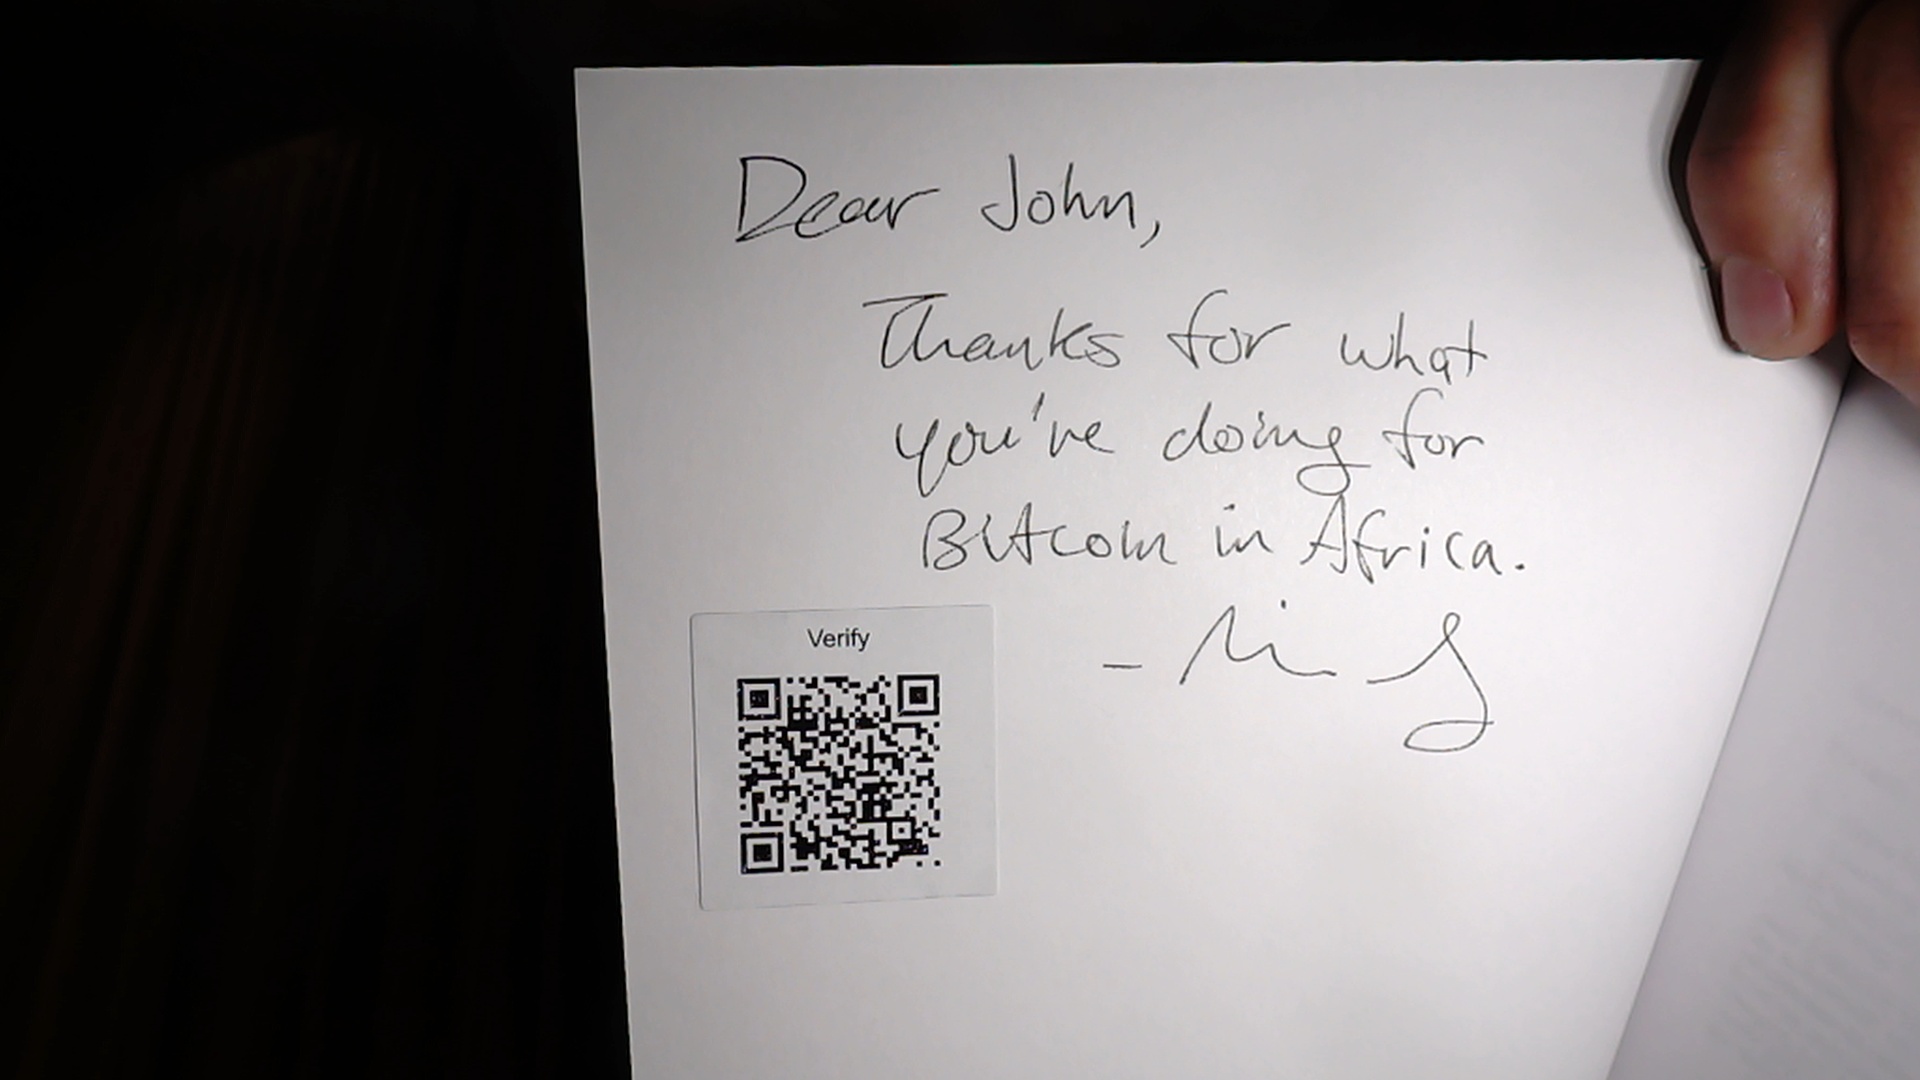 Dear John,
Thanks for what
you've doing for
Bitcoin in Africa.
Verify